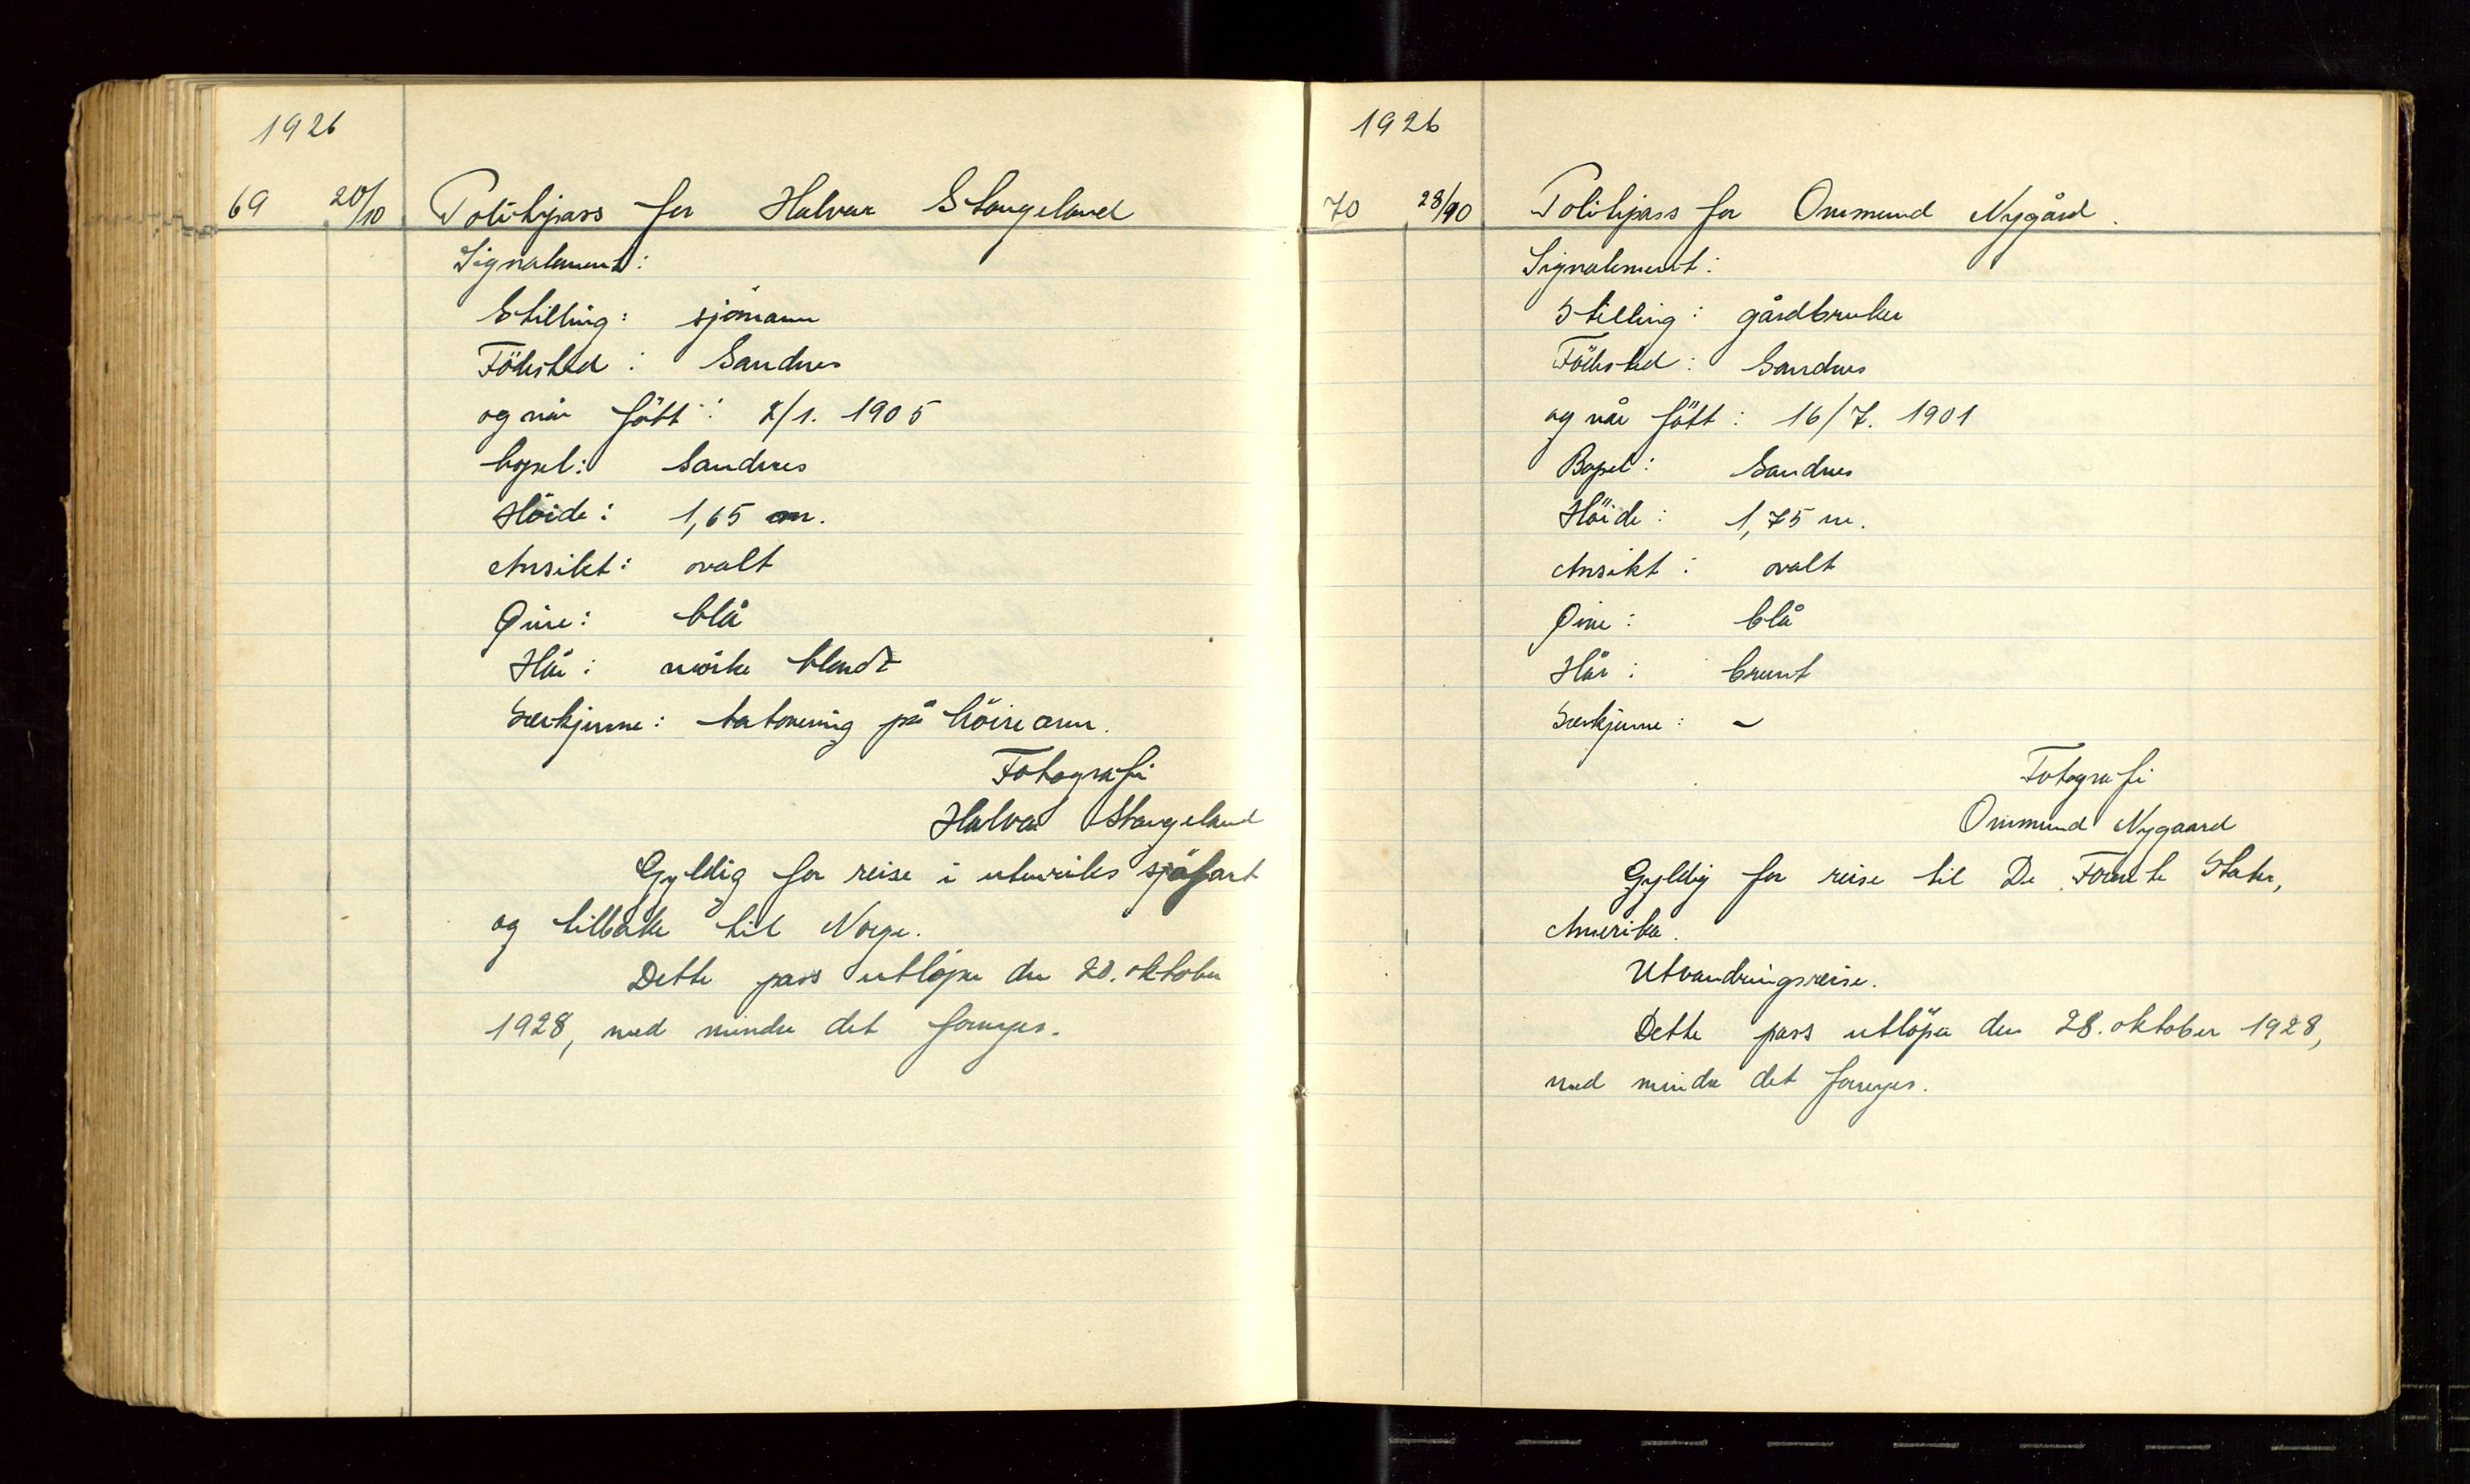 1926
69 20/10 Politipass for Halvar Stangeland
Signalement:
Stilling: sjömann
Födested: Sandnes
og når född: 2/1. 1905
bopel: Sandnes
Höide: 1,65 m.
Ansikt: ovalt
Øine: blå
Hår: mörke blondt
Særkjenne: tatovering på höire arm.
Fotografi
Halvar Stangeland
Gyldig for reise i utenriks sjöfart
og tilbake til Norge.
Dette pass utlöper den 20. oktober
1928, med mindre det fornyes.
1926
70 28/10 Politipass for Ommund Nygård.
Signalement:
Stilling: gårdbruker
Födested: Sandnes
og når fött: 16/7. 1901
Bopel: Sandnes
Höide: 1,75 m.
Ansikt: ovalt
Øine: blå
Hår: brunt
Særkjenne: -
Fotografi
Ommund Nygaard
Gyldig for reise til De Forente Stater,
Amerika.
Utvandringsreise.
Dette pass utlöper den 28. oktober 1928,
med mindre det fornyes.